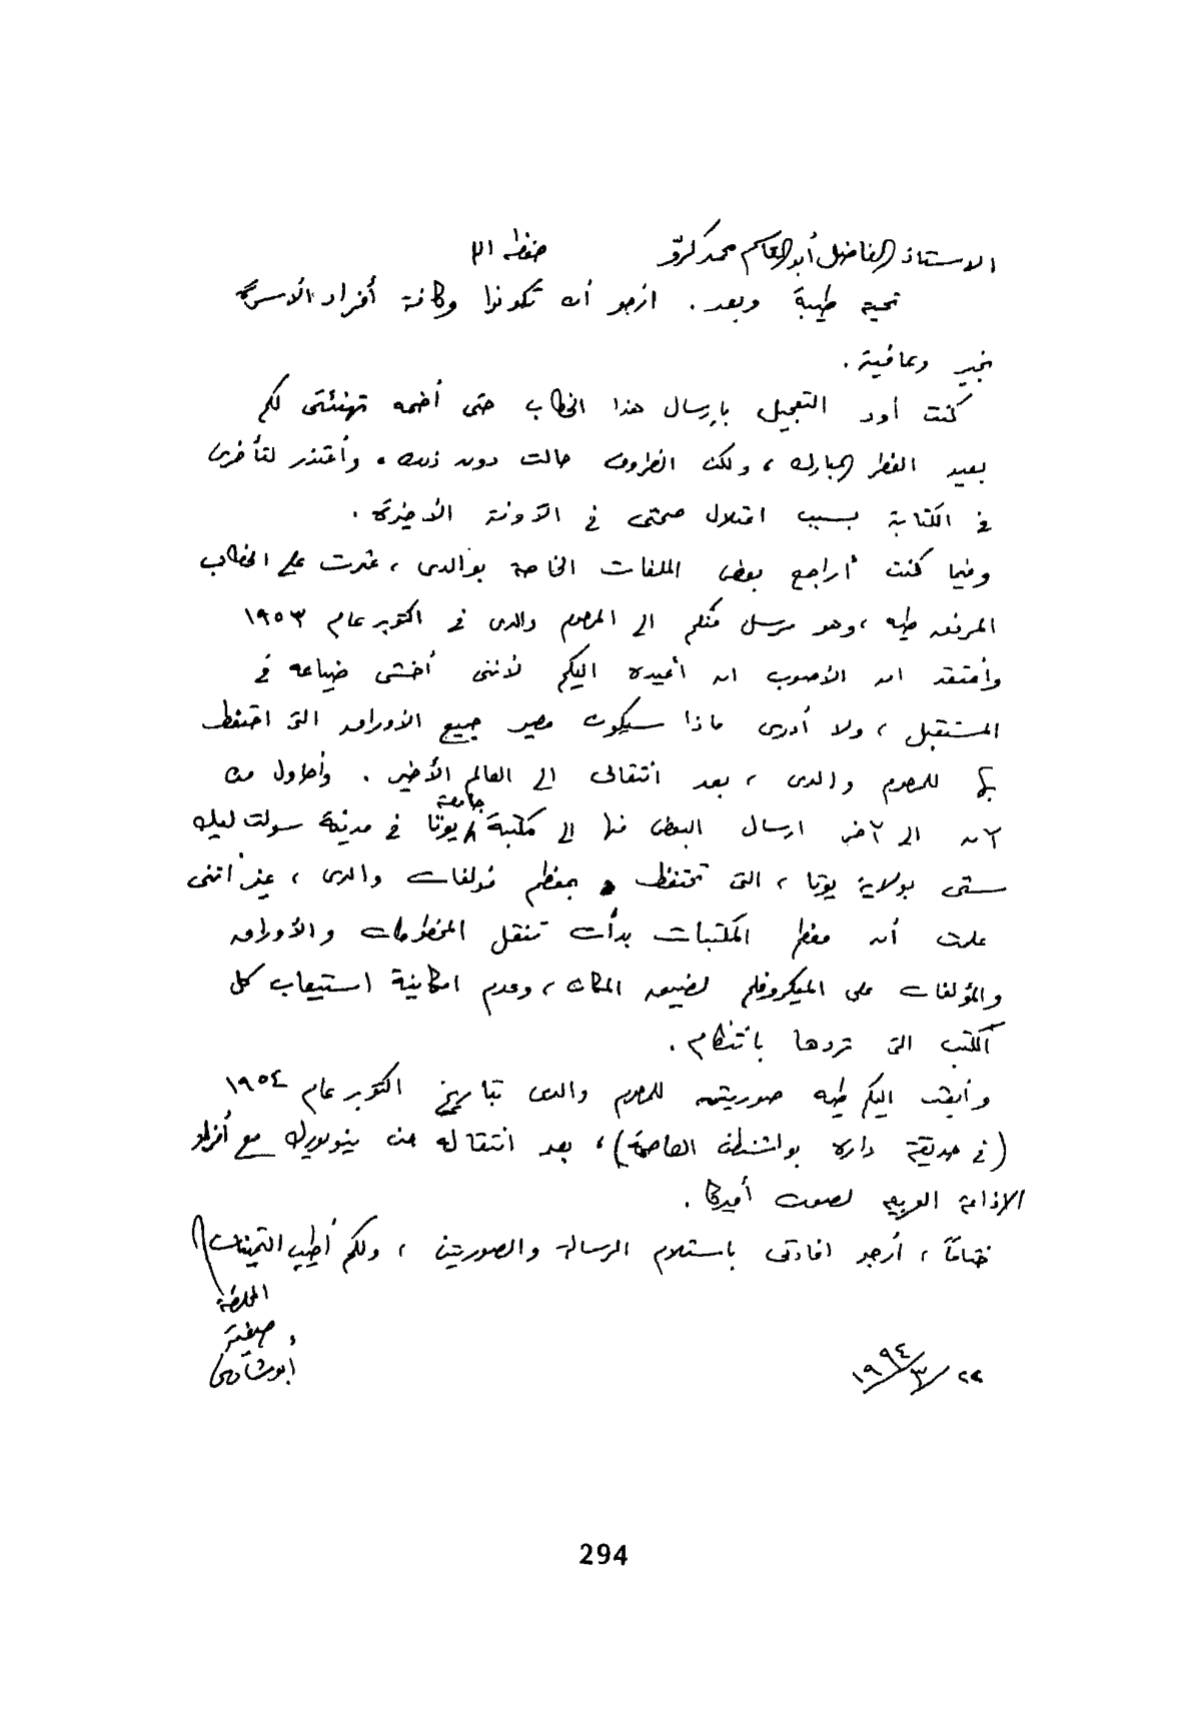 الاستاذ الفاضل أبو القاسم محمد كرّو حفظه الله
تحية طيبة وبعد. ارجو أن تكونوا وكافة أفراد الأسرة
بخير وعافية.
كنت أود التعجيل بإرسال هذا الخطاب حتى أضمنه تهنئتى لكم
بعيد الفطر المبارك، ولكن الظروف حالت دون ذلك. وأعتذر لتأخرى
في الكتابة بسبب اعتلال صحتى في الآونة الأخيرة.
وفيما كنت أراجع بعض الملفات الخاصة بوالدى، عثرت على الخطاب
المرفق طيه، وهو مرسل منكم الى المرحوم والدى في اكتوبر عام ١٩٥٣
وأعتقد ان الأصوب ان أعيده اليكم لأننى أخشى ضياعه في
المستقبل، ولا أدرى ماذا سيكون مصير جميع الأوراق التى احتفظ
بها المرحوم والدى، بعد انتقالى الى العالم الأخير. وأحاول من
آن الى آخر ارسال البعض منها الى مكتبة جامعة يوتا في مدينة سولت ليك
ستى بولاية يوتا، التى تحتفظ بمعظم مؤلفات والدى، غير أننى
علمت أن معظم المكتبات بدأت تنقل المخطوطات والأوراق
والمؤلفات على الميكروفلم لضيق المكان، وعدم امكانية استيعاب كل
الكتب التى تردها بانتظام.
وأبعث اليكم طيه صورتين للمرحوم والدى بتاريخ اكتوبر عام ١٩٥٤
(في حديقة داره بواشنطن العاصمة)، بعد انتقاله من نيويورك مع أفراد
الاذاعة العربية لصوت أميركا.
ختاماً، أرجو افادتى باستلام الرسالة والصورتين، ولكم أطيب التمنيات
المخلصة
صفية
أبو شادى
٢٢/٣/١٩٩٤
294